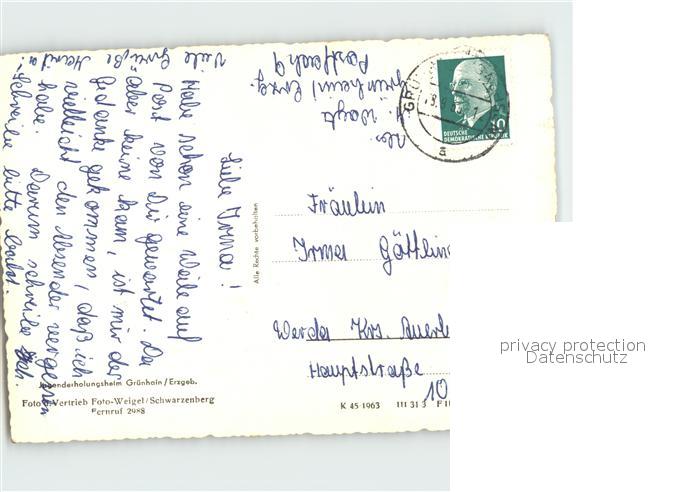 Liebe Irma!
Habe schon eine Weile auf
Post von Dir gewartet. Da
aber keine kam, ist mir der
Gedanke gekommen, daß ich
vielleicht den Absender vergessen
habe. Darum schreibe ich.
Schreibe bitte bald.
Viele Grüße
Abs.
Grünhain / Erzg.
Postfach 9
DEUTSCHE
DEMOKRATISCHE REPUBLIK
10
Alle Rechte vorbehalten
Fräulein
Irma
Werda Krs. Auer
Hauptstraße
10
Jugenderholungsheim Grünhain / Erzgeb.
Foto u. Vertrieb Foto-Weigel / Schwarzenberg
Fernruf 2988
K 45-1963 III 31 3
privacy protection
Datenschutz